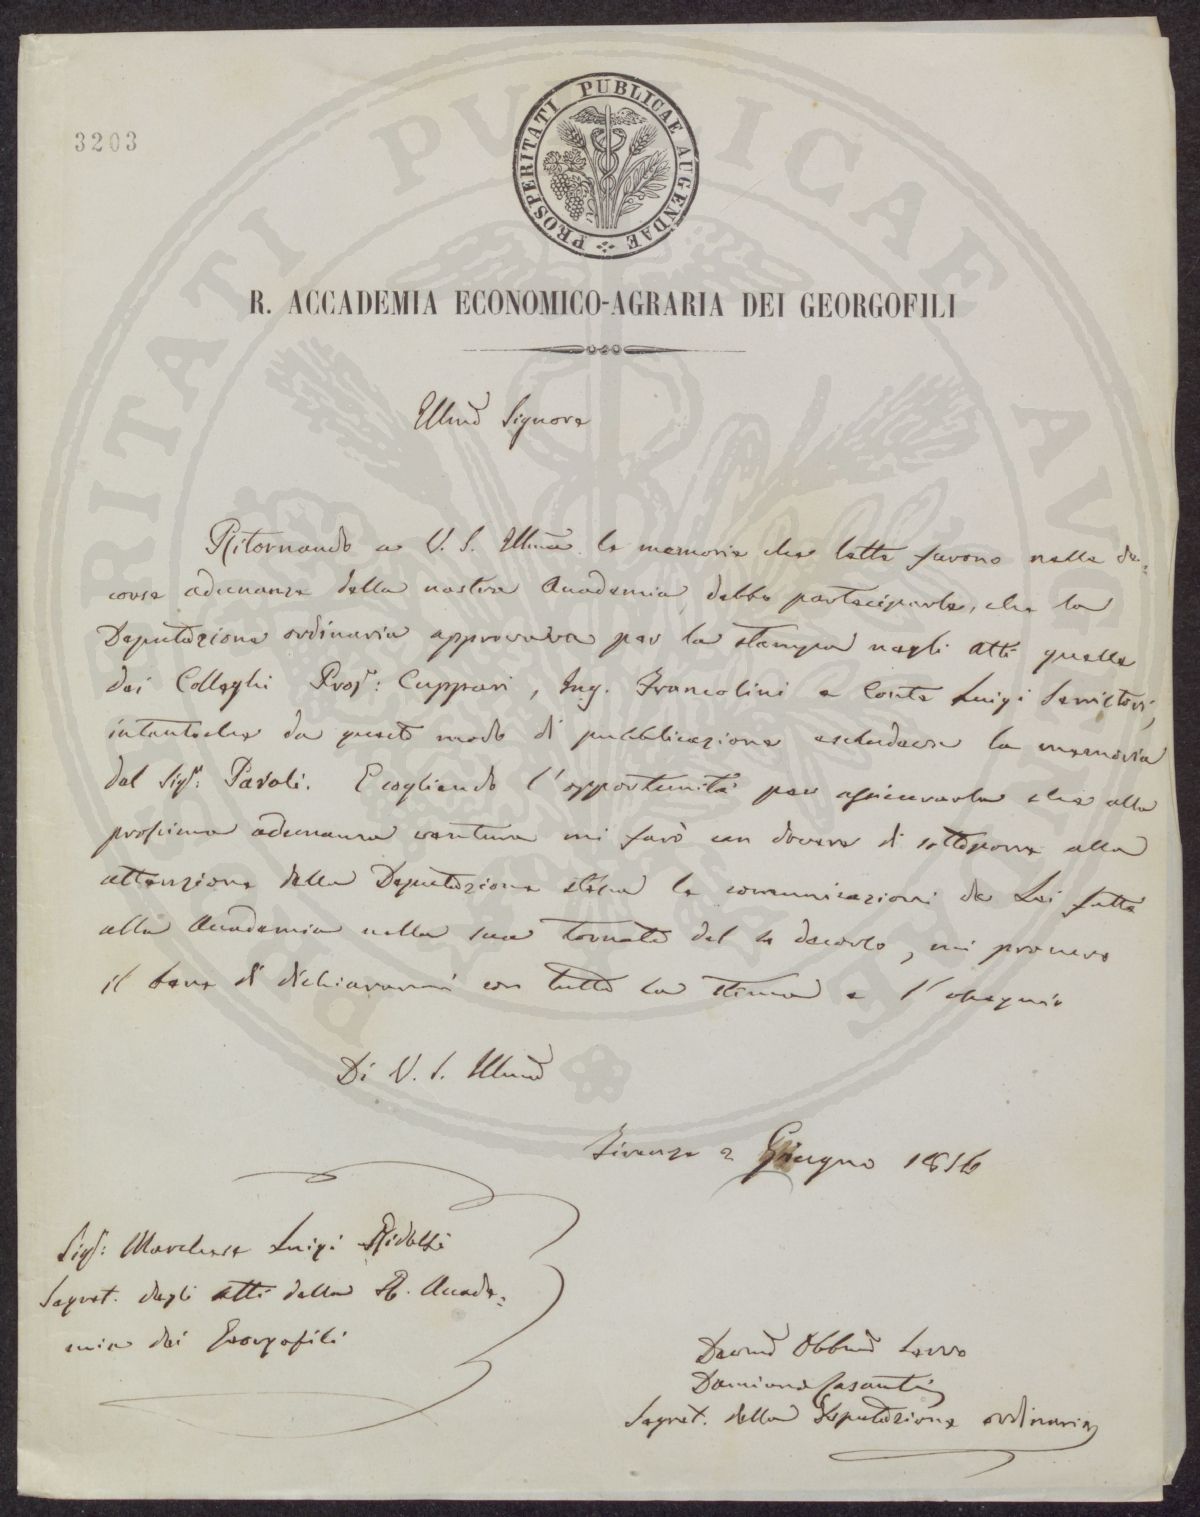 3203
PROSPERITATI PUBLICAE AUGENDAE
R. ACCADEMIA ECONOMICO-AGRARIA DEI GEORGOFILI
Illmo Signore
Ritornando a V. S. Illma le memorie che lette furono nelle de=
corse adunanze della nostra Accademia, debbo parteciparle, che la
Deputazione ordinaria approvava per la stampa negli Atti quelle
dei Colleghi Profr: Cuppari, Ing. Francolini e Conte Luigi Serristori,
intantoche da questo modo di pubblicazione escludeva la memoria
del Sigr: Paroli. E cogliendo l'opportunità per assicurarla che alla
prossima adunanza ventura mi farò un dovere di sottoporre alla
attenzione della Deputazione stessa le comunicazioni da Lei fatte
alla Accademia nella sua tornata del decorso, mi procuro
il bene di dichiararmi con tutta la stima e l'ossequio
Di V. S. Illma
Firenze 2 Giugno 1856
Sigr: Marchese Luigi Ridolfi
Segret. degli Atti della R. Accade=
mia dei Georgofili
Devmo Obbmo Servo
Damiano Casanti
Segret. della Deputazione ordinaria